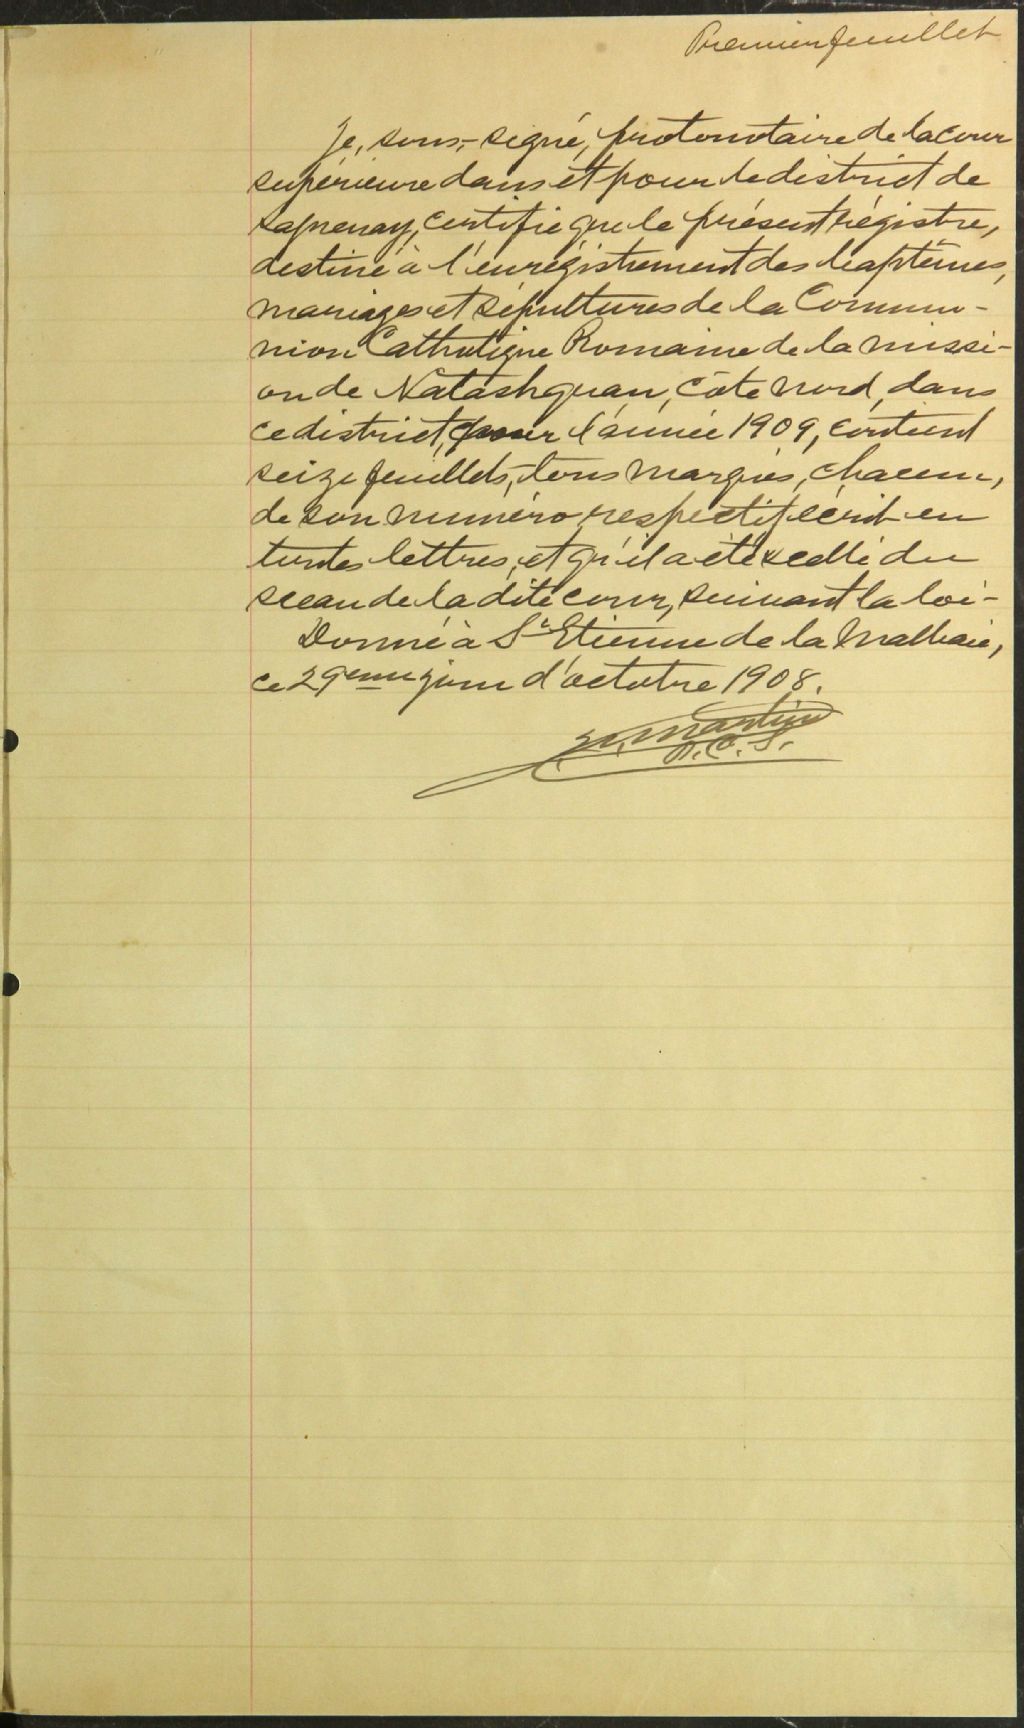 Premier feuillet
Je, sous-signé, protonotaire de la cour
supérieure dans et pour le district de
Saguenay, certifie que le présent régistre,
destiné à l'enrégistrement des baptêmes,
mariages et sépultures de la Commu-
nion Catholique Romaine de la missi-
on de Natashquan, Côte Nord, dans
ce district, pour l'année 1909, contient
seize feuillets, tous marqués, chacun,
de son numéro respectif écrit en
toutes lettres, et qu'il a été scellé du
sceau de la dite cour, suivant la loi-
Donné à St Etienne de la Malbaie,
ce 29eme jour d'octobre 1908.
Martin
P.C.S.